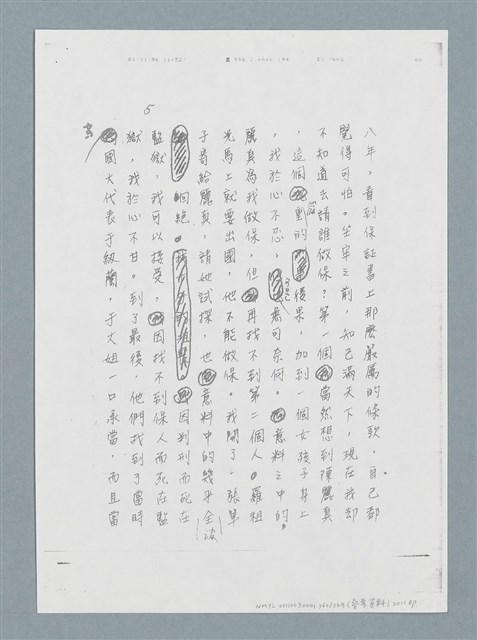 5
八年,看到保証書上那麼嚴厲的條款,自己都
覺得可怕。坐牢之前,知己滿天下,現在我卻
不知道去請誰做保?第一個當然想到陳麗真
,這個嚴重的後果,加到一個女孩子身上
,我於心不忍,無可奈何。意料之中的,
麗真為我做保,但再找不到第二個人。羅祖
光馬上就要出國,他不能做保。我開了一張單
子寄給麗真,請她試探,也意料中的幾乎全被
回絕。因判刑而死在
監獄,我可以接受,因找不到保人而死在監
獄,我於心不甘。到了最後,他們找到了當時
國大代表于紉蘭,于大姐一口承當,而且當
(參考資料)